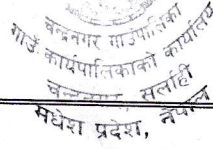 चन्द्रनगर गाउँपालिका
गाउँ कार्यपालिकाको कार्यालय
सर्लाही
मधेश प्रदेश, नेपाल